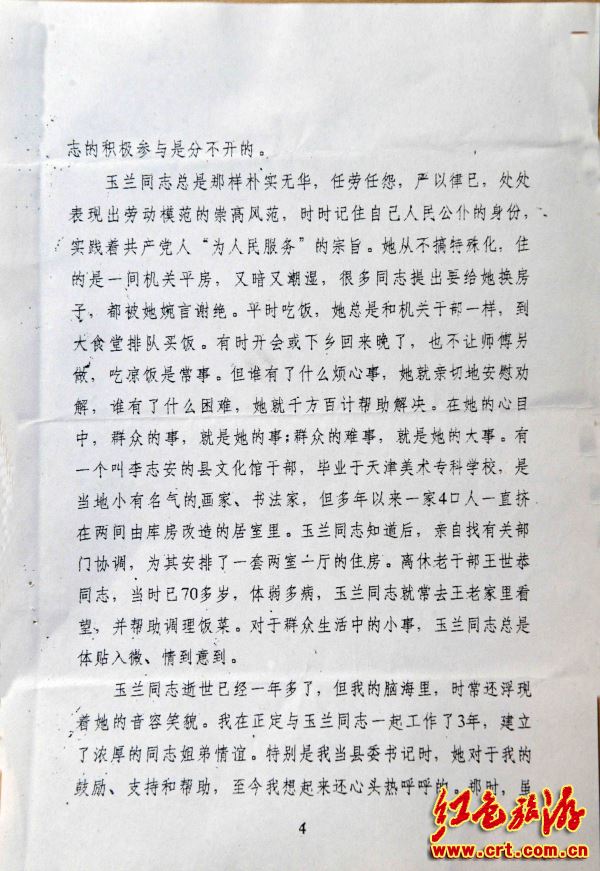 志的积极参与是分不开的。
玉兰同志总是那样朴实无华，任劳任怨，严以律已，处处
表现出劳动模范的崇高风范，时时记住自己人民公仆的身份，
实践着共产党人“为人民服务”的宗旨。她从不搞特殊化，住
的是一间机关平房，又暗又潮湿，很多同志提出要给她换房
子，都被她婉言谢绝。平时吃饭，她总是和机关干部一样，到
大食堂排队买饭。有时开会或下乡回来晚了，也不让师傅另
做，吃凉饭是常事。但谁有了什么烦心事，她就亲切地安慰劝
解，谁有了什么困难，她就千方百计帮助解决。在她的心目
中，群众的事，就是她的事；群众的难事，就是她的大事。有
一个叫李志安的县文化馆干部，毕业于天津美术专科学校，是
当地小有名气的画家、书法家，但多年以来一家4口人一直挤
在两间由库房改造的居室里。玉兰同志知道后，亲自找有关部
门协调，为其安排了一套两室一厅的住房。离休老干部王世恭
同志，当时已70多岁，体弱多病，玉兰同志就常去王老家里看
望，并帮助调理饭菜。对于群众生活中的小事，玉兰同志总是
体贴入微、情到意到。
玉兰同志逝世已经一年多了，但我的脑海里，时常还浮现
着她的音容笑貌。我在正定与玉兰同志一起工作了3年，建立
了浓厚的同志姐弟情谊。特别是我当县委书记时，她对于我的
鼓励、支持和帮助，至今我想起来还心头热呼呼的。那时，虽
4
红色旅游
www.crt.com.cn